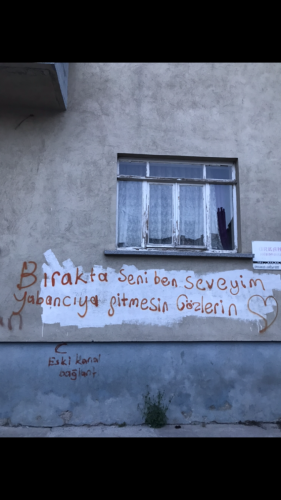 Bırakta Seni ben Seveyim
Yabancıya gitmesin Gözlerin
Eski Karai
bağlart